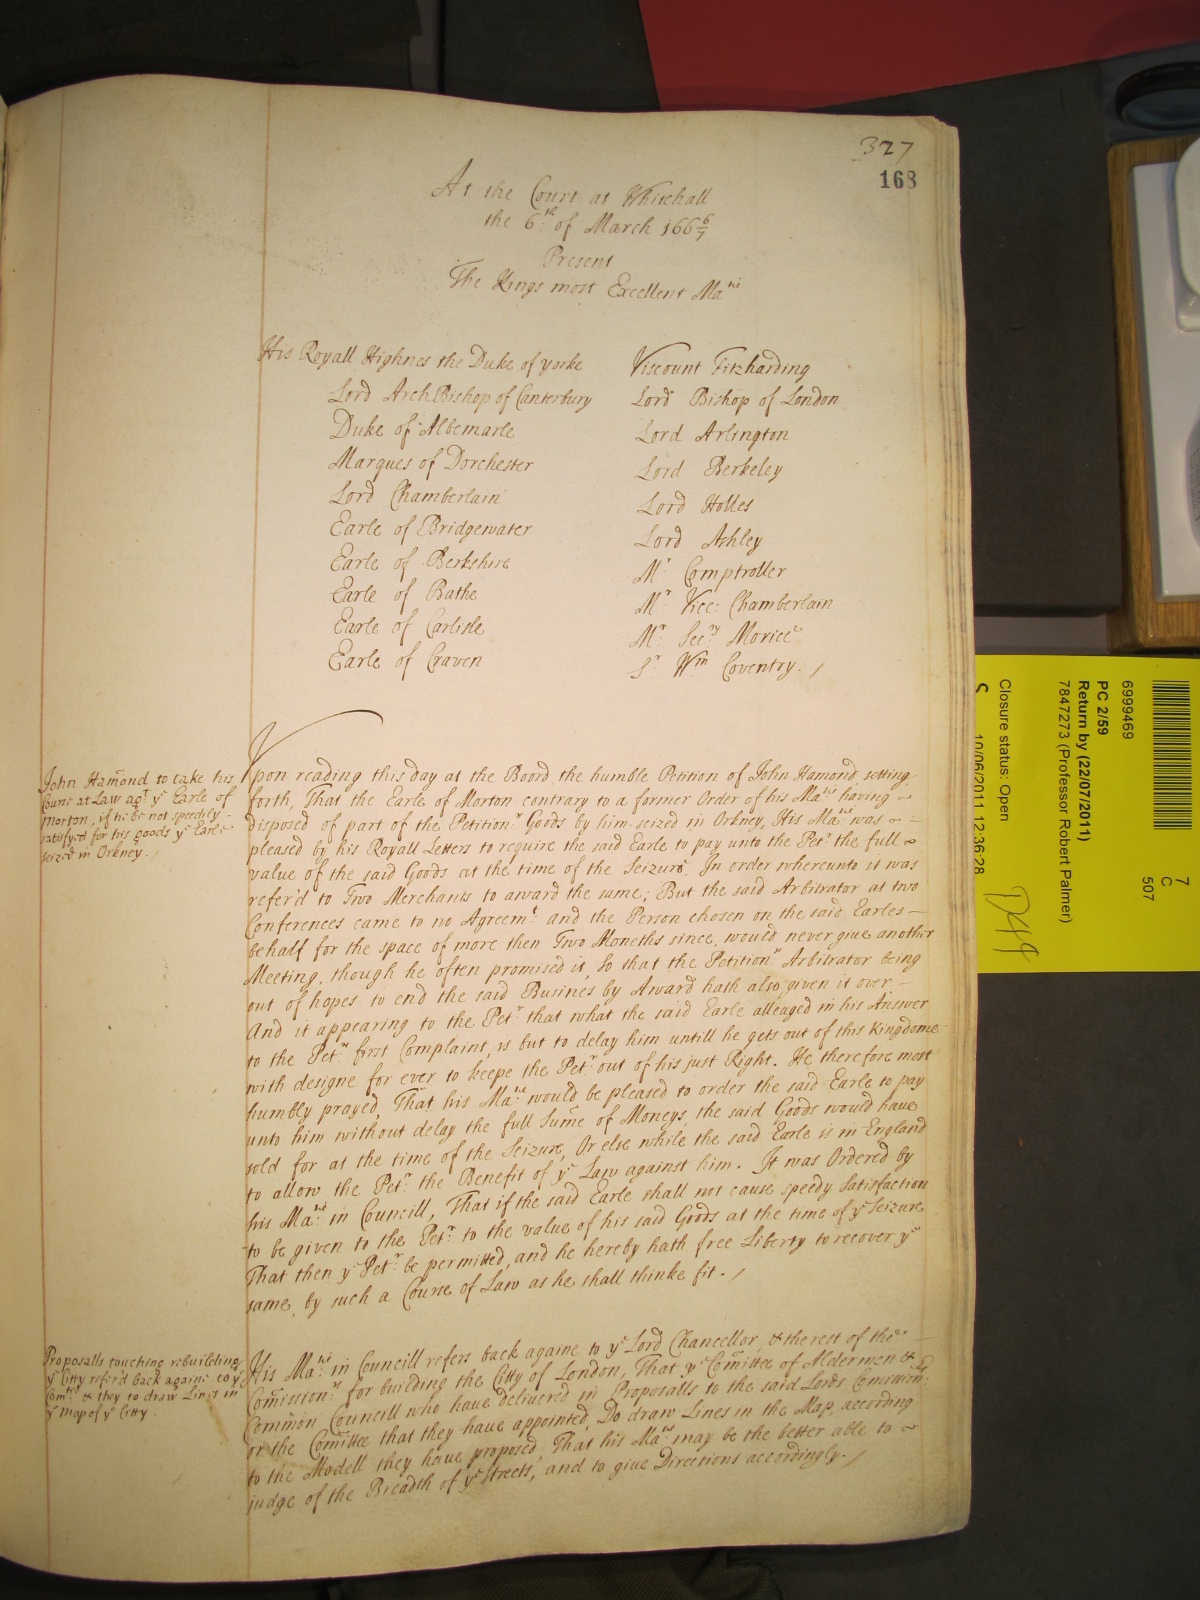 327
168
At the Court at Whitehall
the 6th of March 166 6/7
Present
The Kings most Excellent Matie
His Royall Highnes the Duke of Yorke
Lord ArchBishop of Canterbury
Duke of Albemarle
Marques of Dorchester
Lord Chamberlain
Earle of Bridgewater
Earle of Berkshire
Earle of Bathe
Earle of Carlisle
Earle of Craven
Viscount Fitzharding
Lord Bishop of London
Lord Arlington
Lord Berkeley
Lord Holles
Lord Ashley
Mr Comptroller
Mr Vice: Chamberlain
Mr Secry Morice
Sr Wm Coventry. /
John Hamond to take his
Course at Law agt ye Earle of
Morton, if he be not speedily
satisfyed for his goods ye Earle
seized in Orkney. /
Upon reading this day at the Board the humble Petition of John Hamond setting
forth, That the Earle of Morton contrary to a former Order of his Matie having
disposed of part of the Petitionrs Goods by him seized in Orkney, His Matie was
pleased by his Royall Letters to require the said Earle to pay unto the Petr the full
value of the said Goods at the time of the Seizure. In order whereunto it was
refer'd to Two Merchants to award the same; But the said Arbitrator at two
Conferences came to no Agreemt and the Person chosen on the said Earles
behalf for the space of more then Two Moneths since, would never give another
Meeting, though he often promised it, So that the Petitionrs Arbitrator being
out of hopes to end the said Busines by Award hath also given it over
And it appearing to the Petr that what the said Earle alleaged in his Answer
to the Petrs first Complaint, is but to delay him untill he gets out of this Kingdome
with designe for ever to keepe the Petr out of his just Right. He therefore most
humbly prayed, That his Matie would be pleased to order the said Earle to pay
unto him without delay the full Sume of Moneys, the said Goods would have
sold for at the time of the Seizure, Or else while the said Earle is in England
to allow the Petr the Benefit of ye Law against him. It was Ordered by
his Matie in Councill, That if the said Earle shall not cause speedy Satisfaction
to be given to the Petr to the value of his said Goods at the time of ye Seizure
That then ye Petr be permitted, and he hereby hath free Liberty to recover ye
same, by such a Course of Law as he shall thinke fit. /
Proposalls touching rebuilding
ye Citty refer'd back againe to ye
Comrs & they to draw Lines in
ye Map of ye Citty
His Matie in Councill refers back againe to ye Lord Chancellor, & the rest of the
Comissionrs for building the Citty of London, That ye Comittee of Aldermen &
Common Councill who have delivered in Proposalls to the said Lords Comission:
or the Comittee that they have appointed, Do draw Lines in the Map, according
to the Modell they have proposed, That his Matie may be the better able to
judge of the Breadth of ye Streets, and to give Directions accordingly. /
7
C
507
6999469
PC 2/59
Return by (22/07/2011)
7847273 (Professor Robert Palmer)
Closure status: Open
10/06/2011 12:36:28